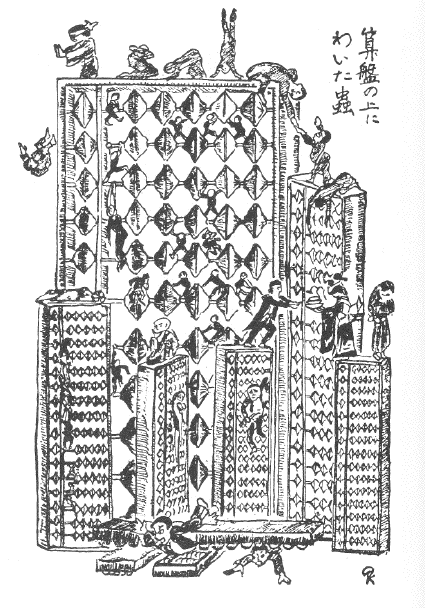 算盤の上に
わいた蟲